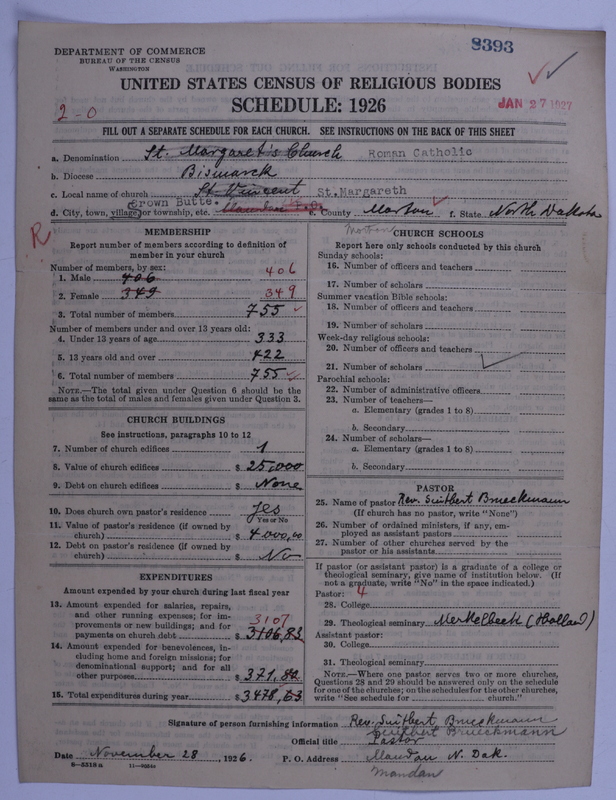 8393
DEPARTMENT OF COMMERCE
BUREAU OF THE CENSUS
WASHINGTON
UNITED STATES CENSUS OF RELIGIOUS BODIES
SCHEDULE: 1926
JAN 27 1927
2-0
FILL OUT A SEPARATE SCHEDULE FOR EACH CHURCH. SEE INSTRUCTIONS ON THE BACK OF THIS SHEET
a. Denomination St. Margaret's Church Roman Catholic
b. Diocese Bismarck
c. Local name of church St Vincent St.Margareth
Crown Butte.
d. City, town, village, or township, etc. Mandan P.O. e. County Morton f. State North Dakota
Morton
R
MEMBERSHIP
Report number of members according to definition of member in your church
Number of members, by sex:
1. Male 406 406
2. Female 349 349
3. Total number of members 755
Number of members under and over 13 years old:
4. Under 13 years of age 333
5. 13 years old and over 422
6. Total number of members 755
NOTE.—The total given under Question 6 should be the same as the total of males and females given under Question 3.
CHURCH BUILDINGS
See instructions, paragraphs 10 to 12
7. Number of church edifices 1
8. Value of church edifices $ 25,000
9. Debt on church edifices $ None
10. Does church own pastor's residence Yes
Yes or No
11. Value of pastor's residence (if owned by church) $ 4000,00
12. Debt on pastor's residence (if owned by church) $ No
EXPENDITURES
Amount expended by your church during last fiscal year
13. Amount expended for salaries, repairs, and other running expenses; for improvements or new buildings; and for payments on church debt $ 3106,83
3107
14. Amount expended for benevolences, including home and foreign missions; for denominational support; and for all other purposes $ 371,82
15. Total expenditures during year $ 3478,63
CHURCH SCHOOLS
Report here only schools conducted by this church
Sunday schools:
16. Number of officers and teachers
17. Number of scholars
Summer vacation Bible schools:
18. Number of officers and teachers
19. Number of scholars
Week-day religious schools:
20. Number of officers and teachers
21. Number of scholars
Parochial schools:
22. Number of administrative officers
23. Number of teachers—
a. Elementary (grades 1 to 8)
b. Secondary
24. Number of scholars—
a. Elementary (grades 1 to 8)
b. Secondary
PASTOR
25. Name of pastor Rev. Suitbert Brueckmann
(If church has no pastor, write "None")
26. Number of ordained ministers, if any, employed as assistant pastors
27. Number of other churches served by the pastor or his assistants
If pastor (or assistant pastor) is a graduate of a college or theological seminary, give name of institution below. (If not a graduate, write "No" in the space indicated.)
Pastor: 4
28. College
29. Theological seminary Merkelbeek (Holland)
Assistant pastor:
30. College
31. Theological seminary
NOTE.—Where one pastor serves two or more churches, Questions 28 and 29 should be answered only on the schedule for one of the churches; on the schedules for the other churches, write "See schedule for church."
Signature of person furnishing information Rev. Suitbert Brueckmann
Suitbert Brueckmann
Official title Pastor
Date November 28, 1926. P. O. Address Mandan N. Dak.
Mandan
8-5318 a